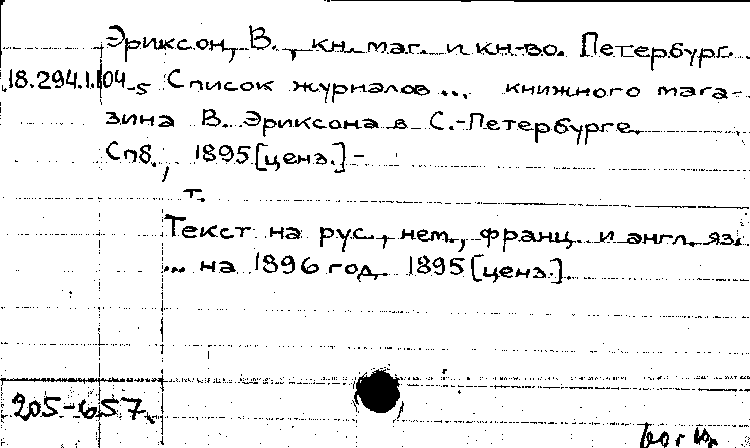 Эриксон, В., кн. маг. и кн-во. Петербург.
18.294.1.104-5 Список журналов ... книжного мага-
зина В. Эриксона в С.-Петербурге.
Спб., 1895 [ценз.] -
т.
Текст на рус., нем., франц. и англ. яз.
... на 1896 год. 1895 [ценз.].
205-657.